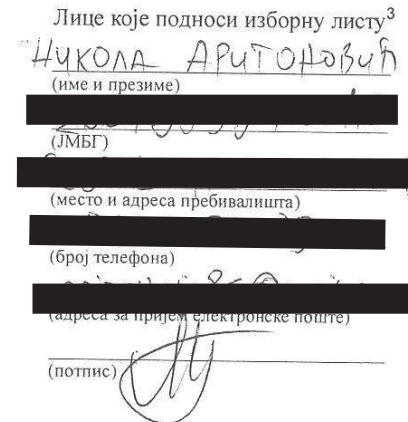 Лице које подноси изборну листу³
НИКОЛА АРИТОНОВИЋ
(име и презиме)
(ЈМБГ)
(место и адреса пребивалишта)
(број телефона)
(адреса за пријем електронске поште)
(потпис)